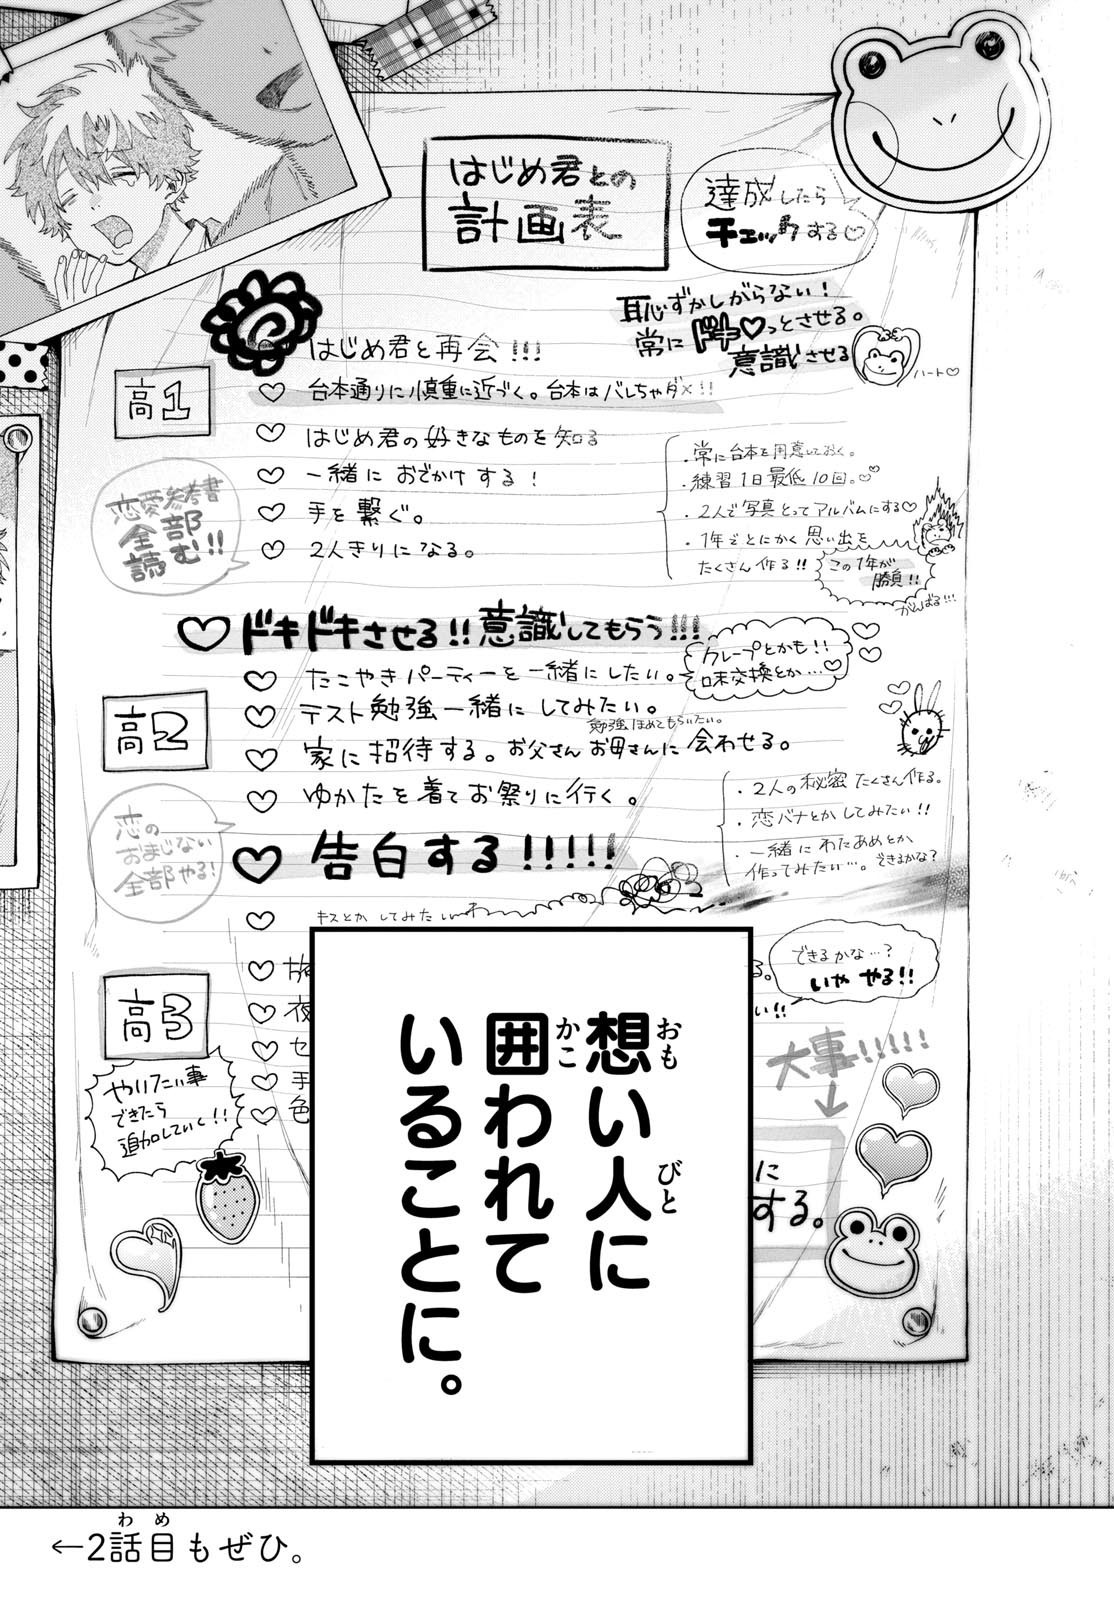 はじめ君との
計画表
達成したら
チェックする♡
恥ずかしがらない！
常にドキ♡っとさせる。
意識させる
ハート♡
はじめ君と再会!!!
高1
♡ 台本通りに慎重に近づく。台本はバレちゃダメ!!
♡ はじめ君の好きなものを知る
♡ 一緒におでかけする！
♡ 手を繋ぐ。
♡ 2人きりになる。
恋愛参考書
全部
読む!!
・常に台本を用意しておく。
・練習1日最低10回。♡♡
・2人で写真とってアルバムにする♡
・1年でとにかく思い出を
たくさん作る!!
この1年が
勝負!!
がんばる!!!
♡ドキドキさせる!!意識してもらう!!!
クレープとかも!!
味交換とか…♡
♡ たこやきパーティーを一緒にしたい。
高2
♡ テスト勉強一緒にしてみたい。
勉強ほめてもらいたい。
♡ 家に招待する。お父さんお母さんに会わせる。
♡ ゆかたを着てお祭りに行く。
♡ 告白する!!!!!
恋の
おまじない
全部やる!
・2人の秘密たくさん作る。
・恋バナとかしてみたい!!
・一緒にわたあめとか
作ってみたい…。できるかな?
♡ キスとかしてみたい
高3
♡
♡ 夜
♡ セ
♡ 手
♡ 色
る。
い!!
できるかな…?
いや やる!!
大事!!!!!
↓
に
する。
やりたい事
できたら
追加していく!!
想い人に
おも
びと
囲われて
かこ
いることに。
←2話目もぜひ。
わ
め